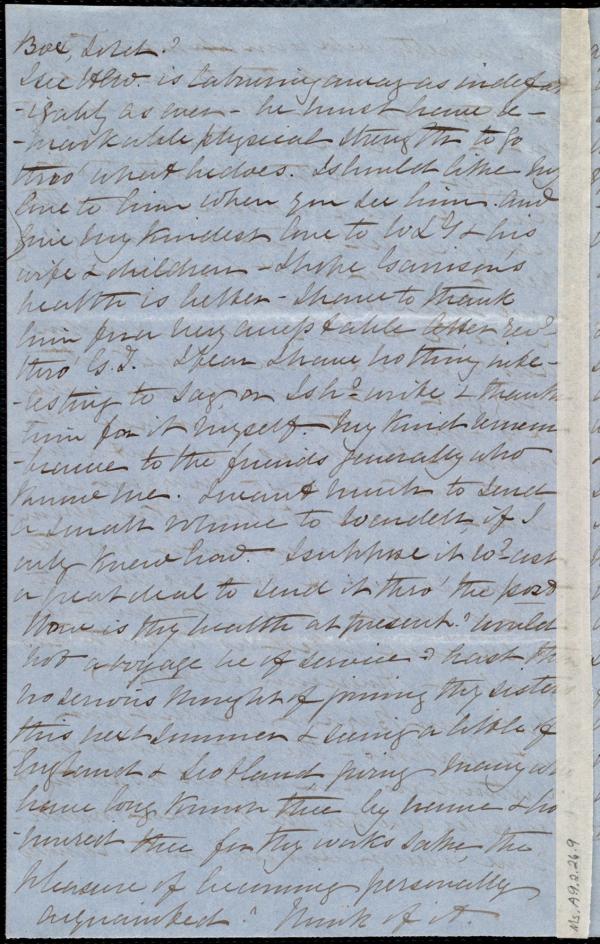 Box, Let?
I see HCW. is labouring away as indefat
-igably as ever - he must have re-
-markable physical strength to go
thro' what he does. I should like my
love to him when you see him and
give my kindest love to W L G & his
wife & children - I hope Garrison's
health is better - I have to thank
him for a very acceptable letter recd
thro' G. T. I fear I have nothing inte-
-resting to say or I shd write & thank
him for it myself. My kind remem
-brance to the friends generally who
know me. I want much to send
a small volume to Wendell, if I
only knew how. I suppose it wd cost
a great deal to send it thro' the post
How is thy health at present? Would
not a voyage be of service? hast th
no serious thought of joining thy sisters
this next summer & seeing a little of
England & Scotland giving many wh
have long known thee by name & ho
-noured thee for thy work's sake, the
pleasure of becoming personally
acquainted? Think of it.
Ms. A.9.2.26.9